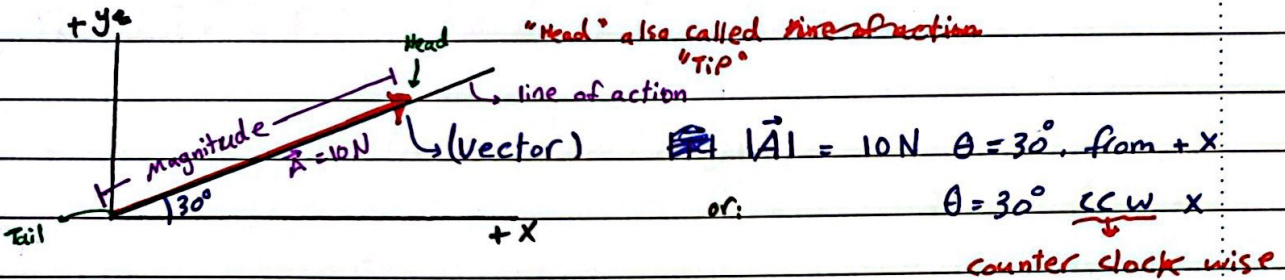 +y
Head
"Head" also called line of action
"Tip"
line of action
Magnitude
A⃗ = 10N
(Vector)
|A⃗| = 10N θ = 30°, from +x
30°
or:
θ = 30° CCW x
Tail
+x
counter clock wise